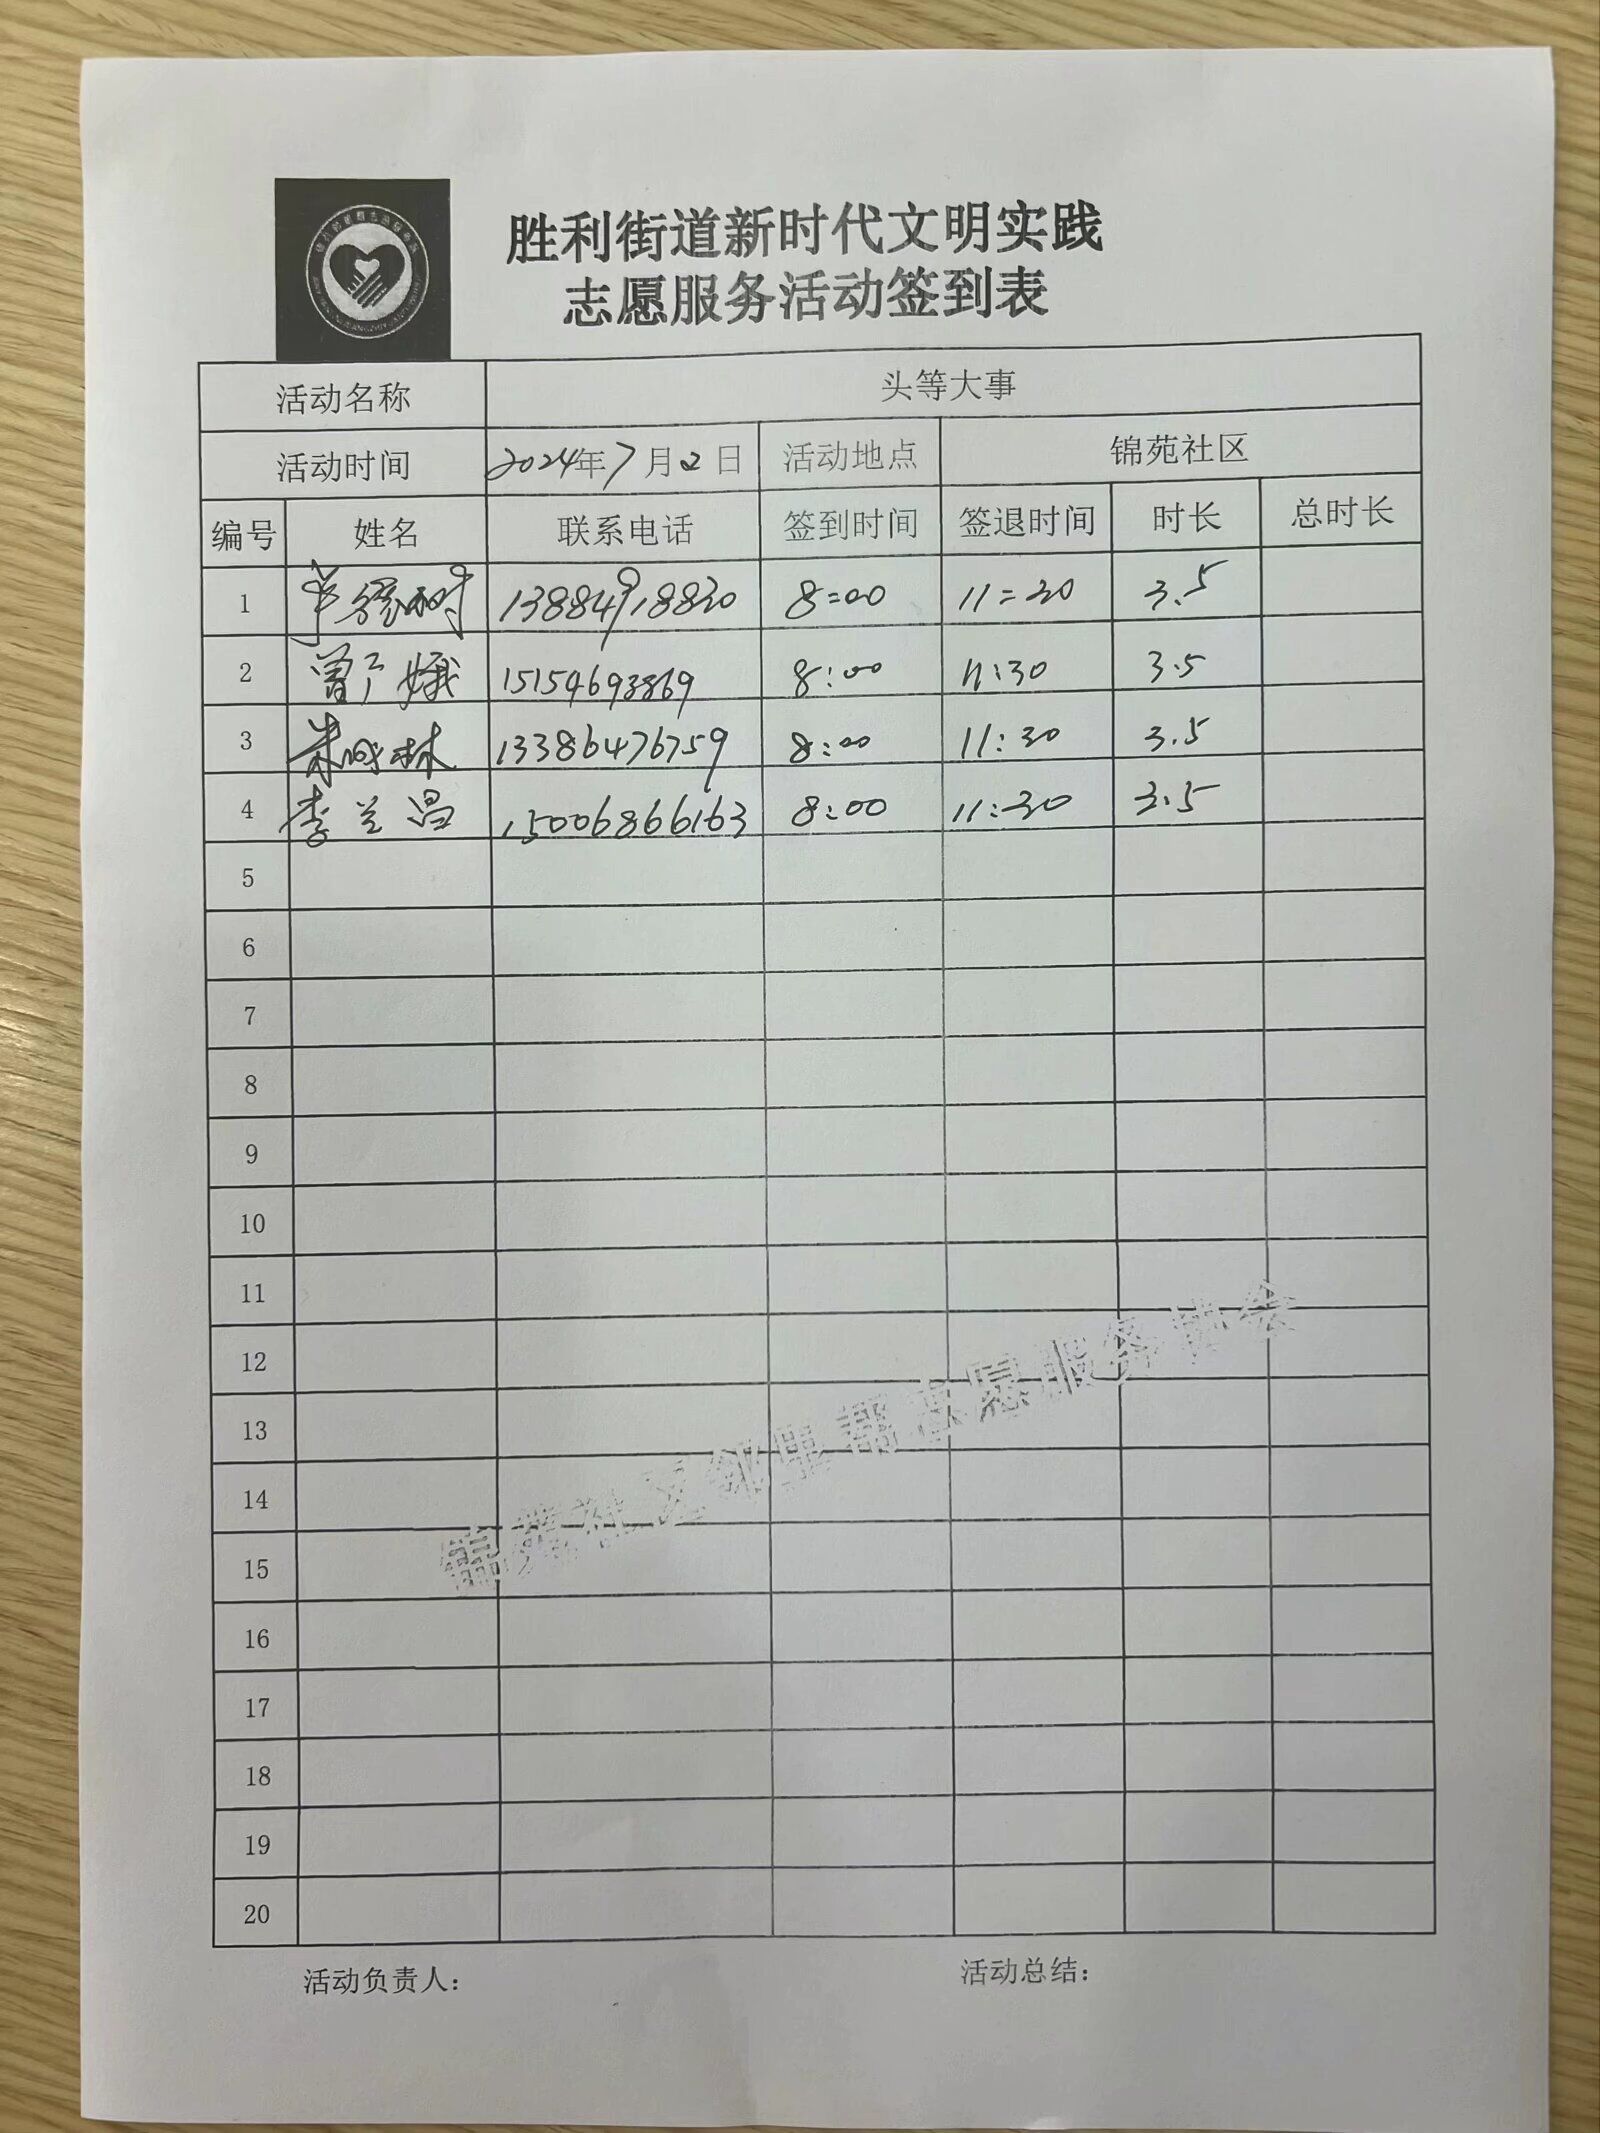 胜利街道新时代文明实践
志愿服务活动签到表
活动名称 头等大事
活动时间 2024年7月2日 活动地点 锦苑社区
编号 姓名 联系电话 签到时间 签退时间 时长 总时长
1 13884918830 8:00 11:30 3.5
2 曾广娥 15154693869 8:00 11:30 3.5
3 朱成林 13386476759 8:00 11:30 3.5
4 李兰昌 15006866163 8:00 11:30 3.5
5
6
7
8
9
10
11
12
13
14
15
16
17
18
19
20
锦苑社区邻里帮志愿服务协会
活动负责人： 活动总结：